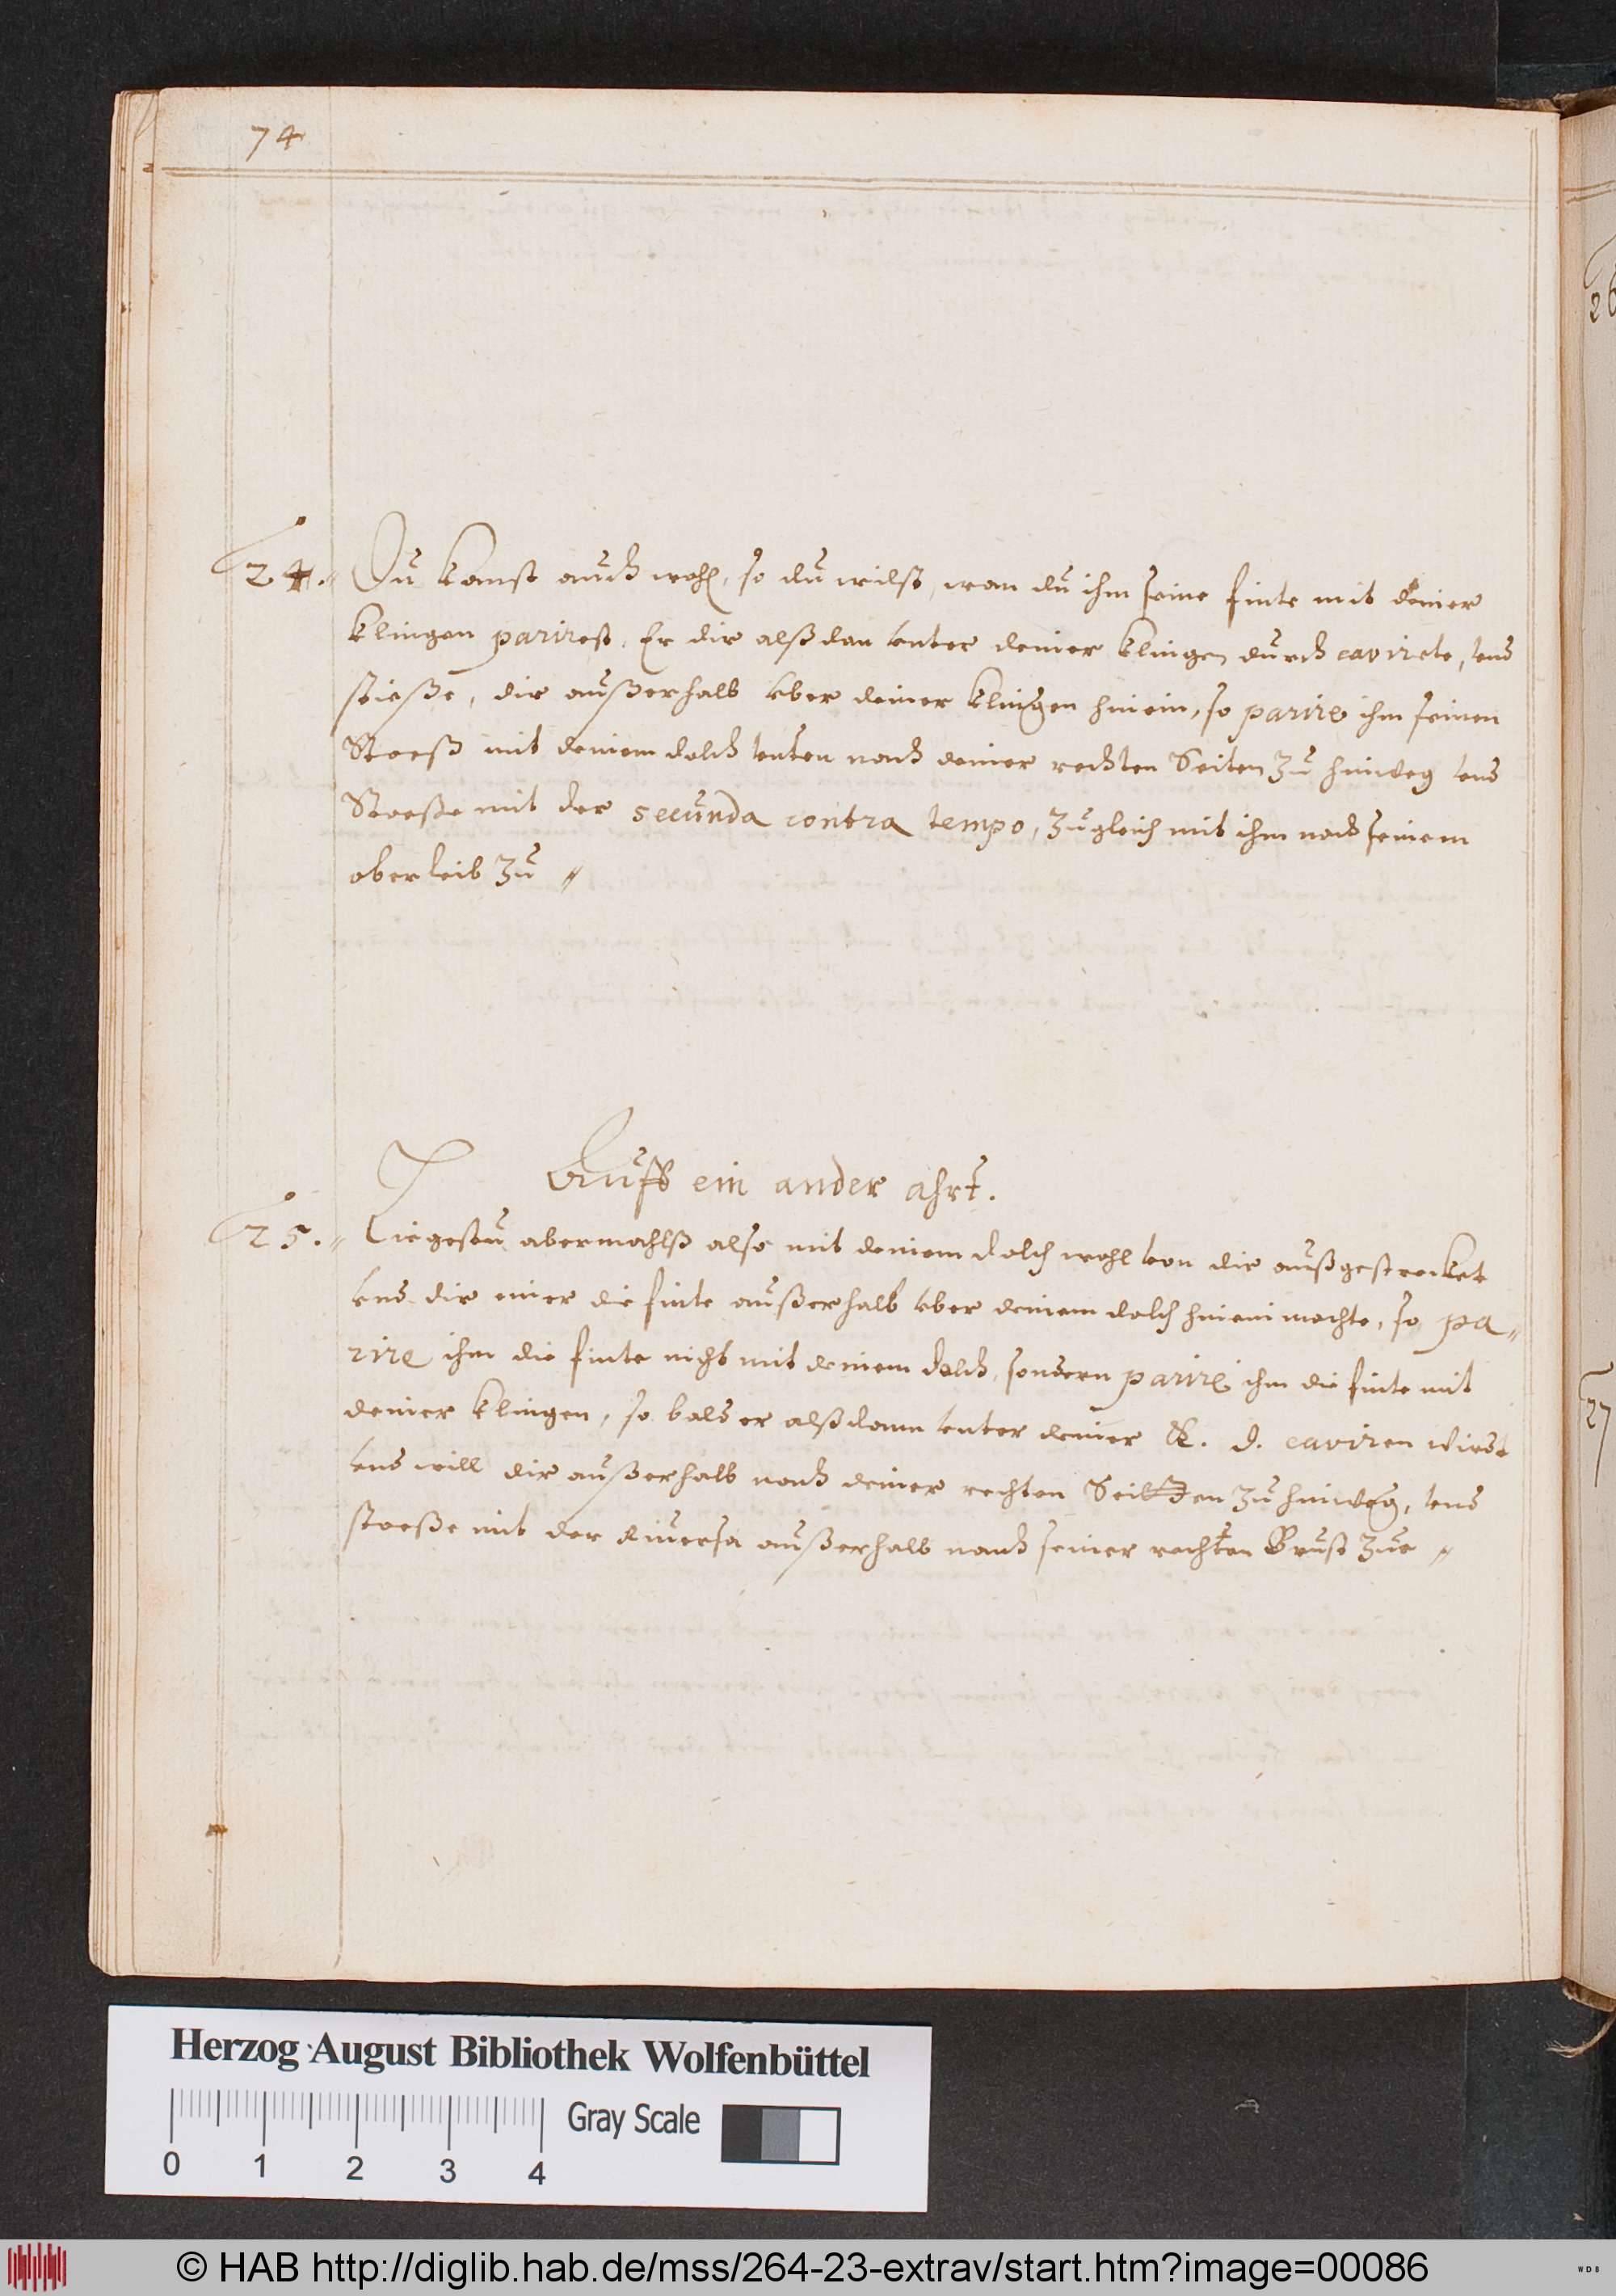 74
24. Du kanst auch wohl, so du wilst, wan du ihm seine finte mit deiner
klingen parirest, Er dir alß dan vnter deiner klingen durch cavirete, vnd
stieße, dir außerhalb vber deiner klingen hinein, so parire ihm seinen
Stoeß mit deinem dolch vnten nach deiner rechten Seiten zu hinweg vnd
Stoeße mit der secunda contra tempo, zugleich mit ihm nach seinem
oberleib zu
Auff ein ander ahrt.
25. Liegestu abermahlß also mit deinem dolch wohl von dir außgestrecket
vnd dir einer die finte außerhalb vber deinem dolch hinein machte, so pa-
rire ihm die finte nicht mit deinem dolch, sondern parire ihm die finte mit
deiner klingen, so bald er alßdann vnter deiner K. d. caviren wirdt
vnd will dir außerhalb nach deiner rechten Seiten zu hinweg, vnd
stoeße mit der riversa außerhalb nach seiner rechten Brust zue
26
27
Herzog August Bibliothek Wolfenbüttel
Gray Scale
0 1 2 3 4
© HAB http://diglib.hab.de/mss/264-23-extrav/start.htm?image=00086